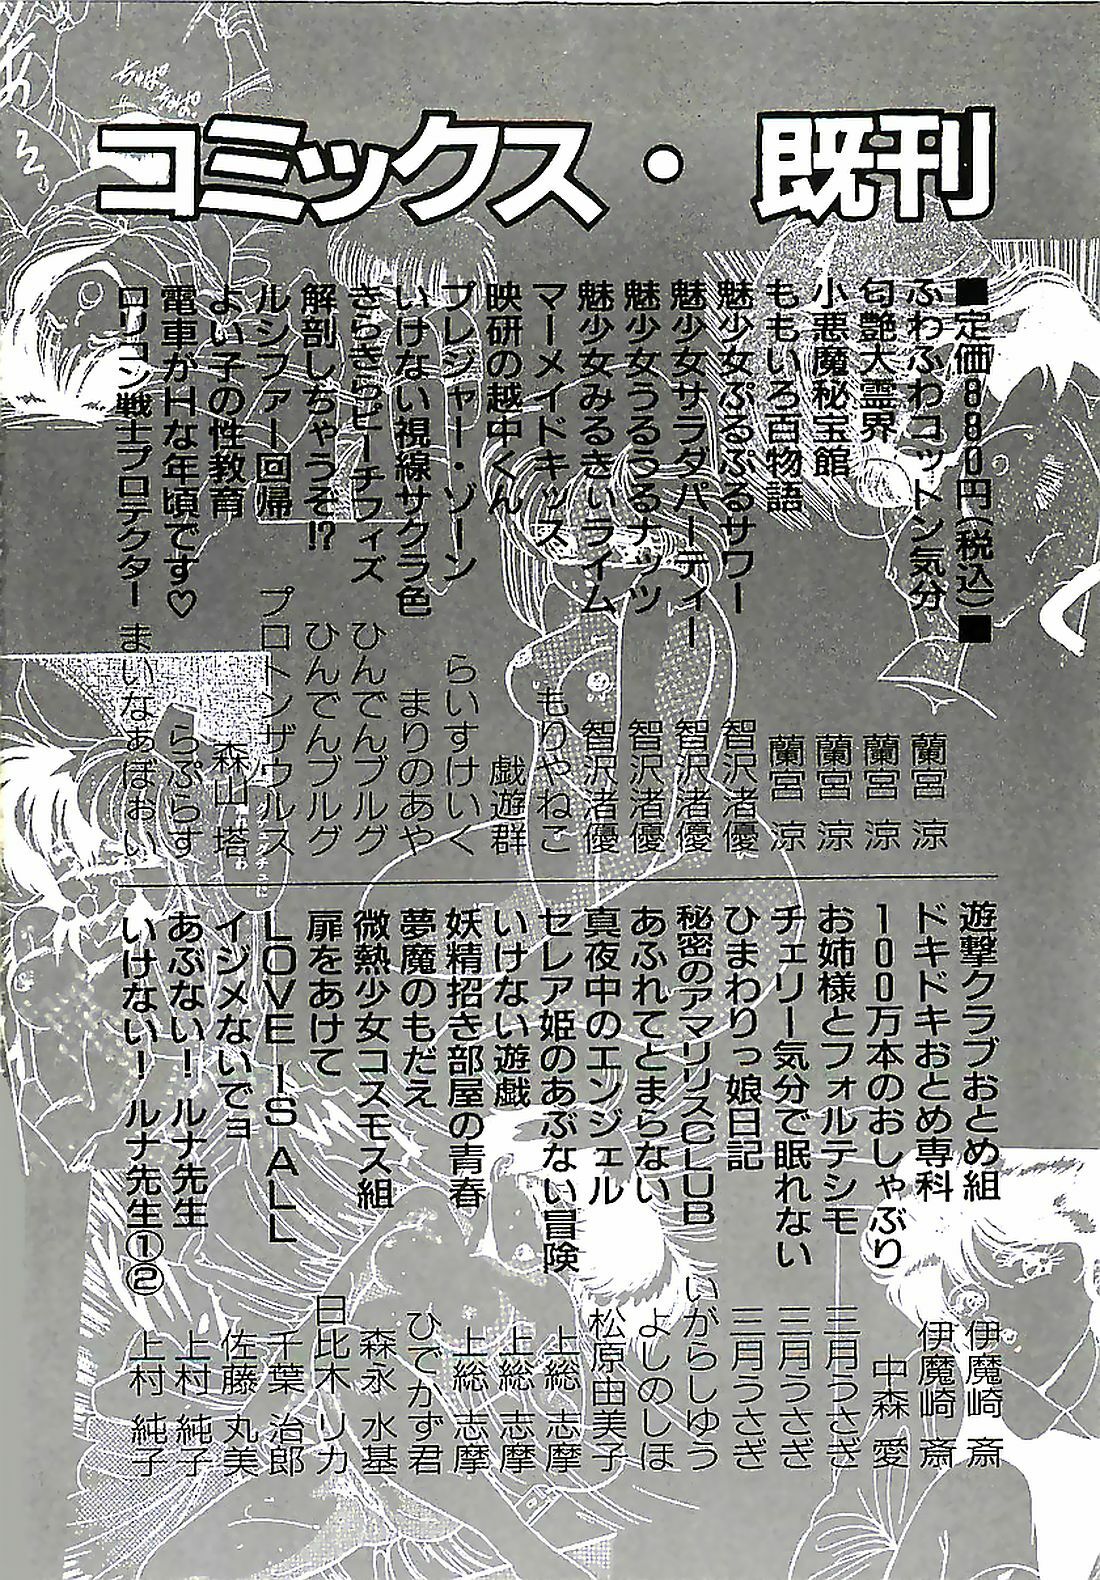 コミックス・既刊
■定価880円(税込)■
ふわふわコットン気分 蘭宮 涼
匂艶大霊界 蘭宮 涼
小悪魔秘宝館 蘭宮 涼
ももいろ百物語 蘭宮 涼
魅少女ぷるぷるサワー 智沢渚優
魅少女サラダパーティー 智沢渚優
魅少女うるうるナッツ 智沢渚優
魅少女みるきぃライム 智沢渚優
マーメイドキッス もりやねこ
映研の越中くん 戯遊群
プレジャー・ゾーン らいすけいく
いけない視線サクラ色 まりのあや
きらきらピーチフィズ ひんでんブルグ
解剖しちゃうぞ!? ひんでんブルグ
ルシファー回帰 プロトンザウルス
よい子の性教育 森山 塔
電車がHな年頃です♡ らぷらす
ロリコン戦士プロテクター まいなぁぼぉい
遊撃クラブおとめ組 伊魔崎 斎
ドキドキおとめ専科 伊魔崎 斎
100万本のおしゃぶり 中森 愛
お姉様とフォルテシモ 三月うさぎ
チェリー気分で眠れない 三月うさぎ
ひまわりっ娘日記 三月うさぎ
秘密のアマリリスCLUB いがらしゆう
あふれてとまらない よしのしほ
真夜中のエンジェル 松原由美子
セレア姫のあぶない冒険 上総 志摩
いけない遊戯 上総 志摩
妖精招き部屋の青春 上総 志摩
夢魔のもだえ ひでかず君
微熱少女コスモス組 森永 水基
扉をあけて 日比木 リカ
LOVE IS ALL 千葉 治郎
イジメないでヨ 佐藤 丸美
あぶない!ルナ先生 上村 純子
いけない!ルナ先生①② 上村 純子
ちゅぱ
ちゅぱ